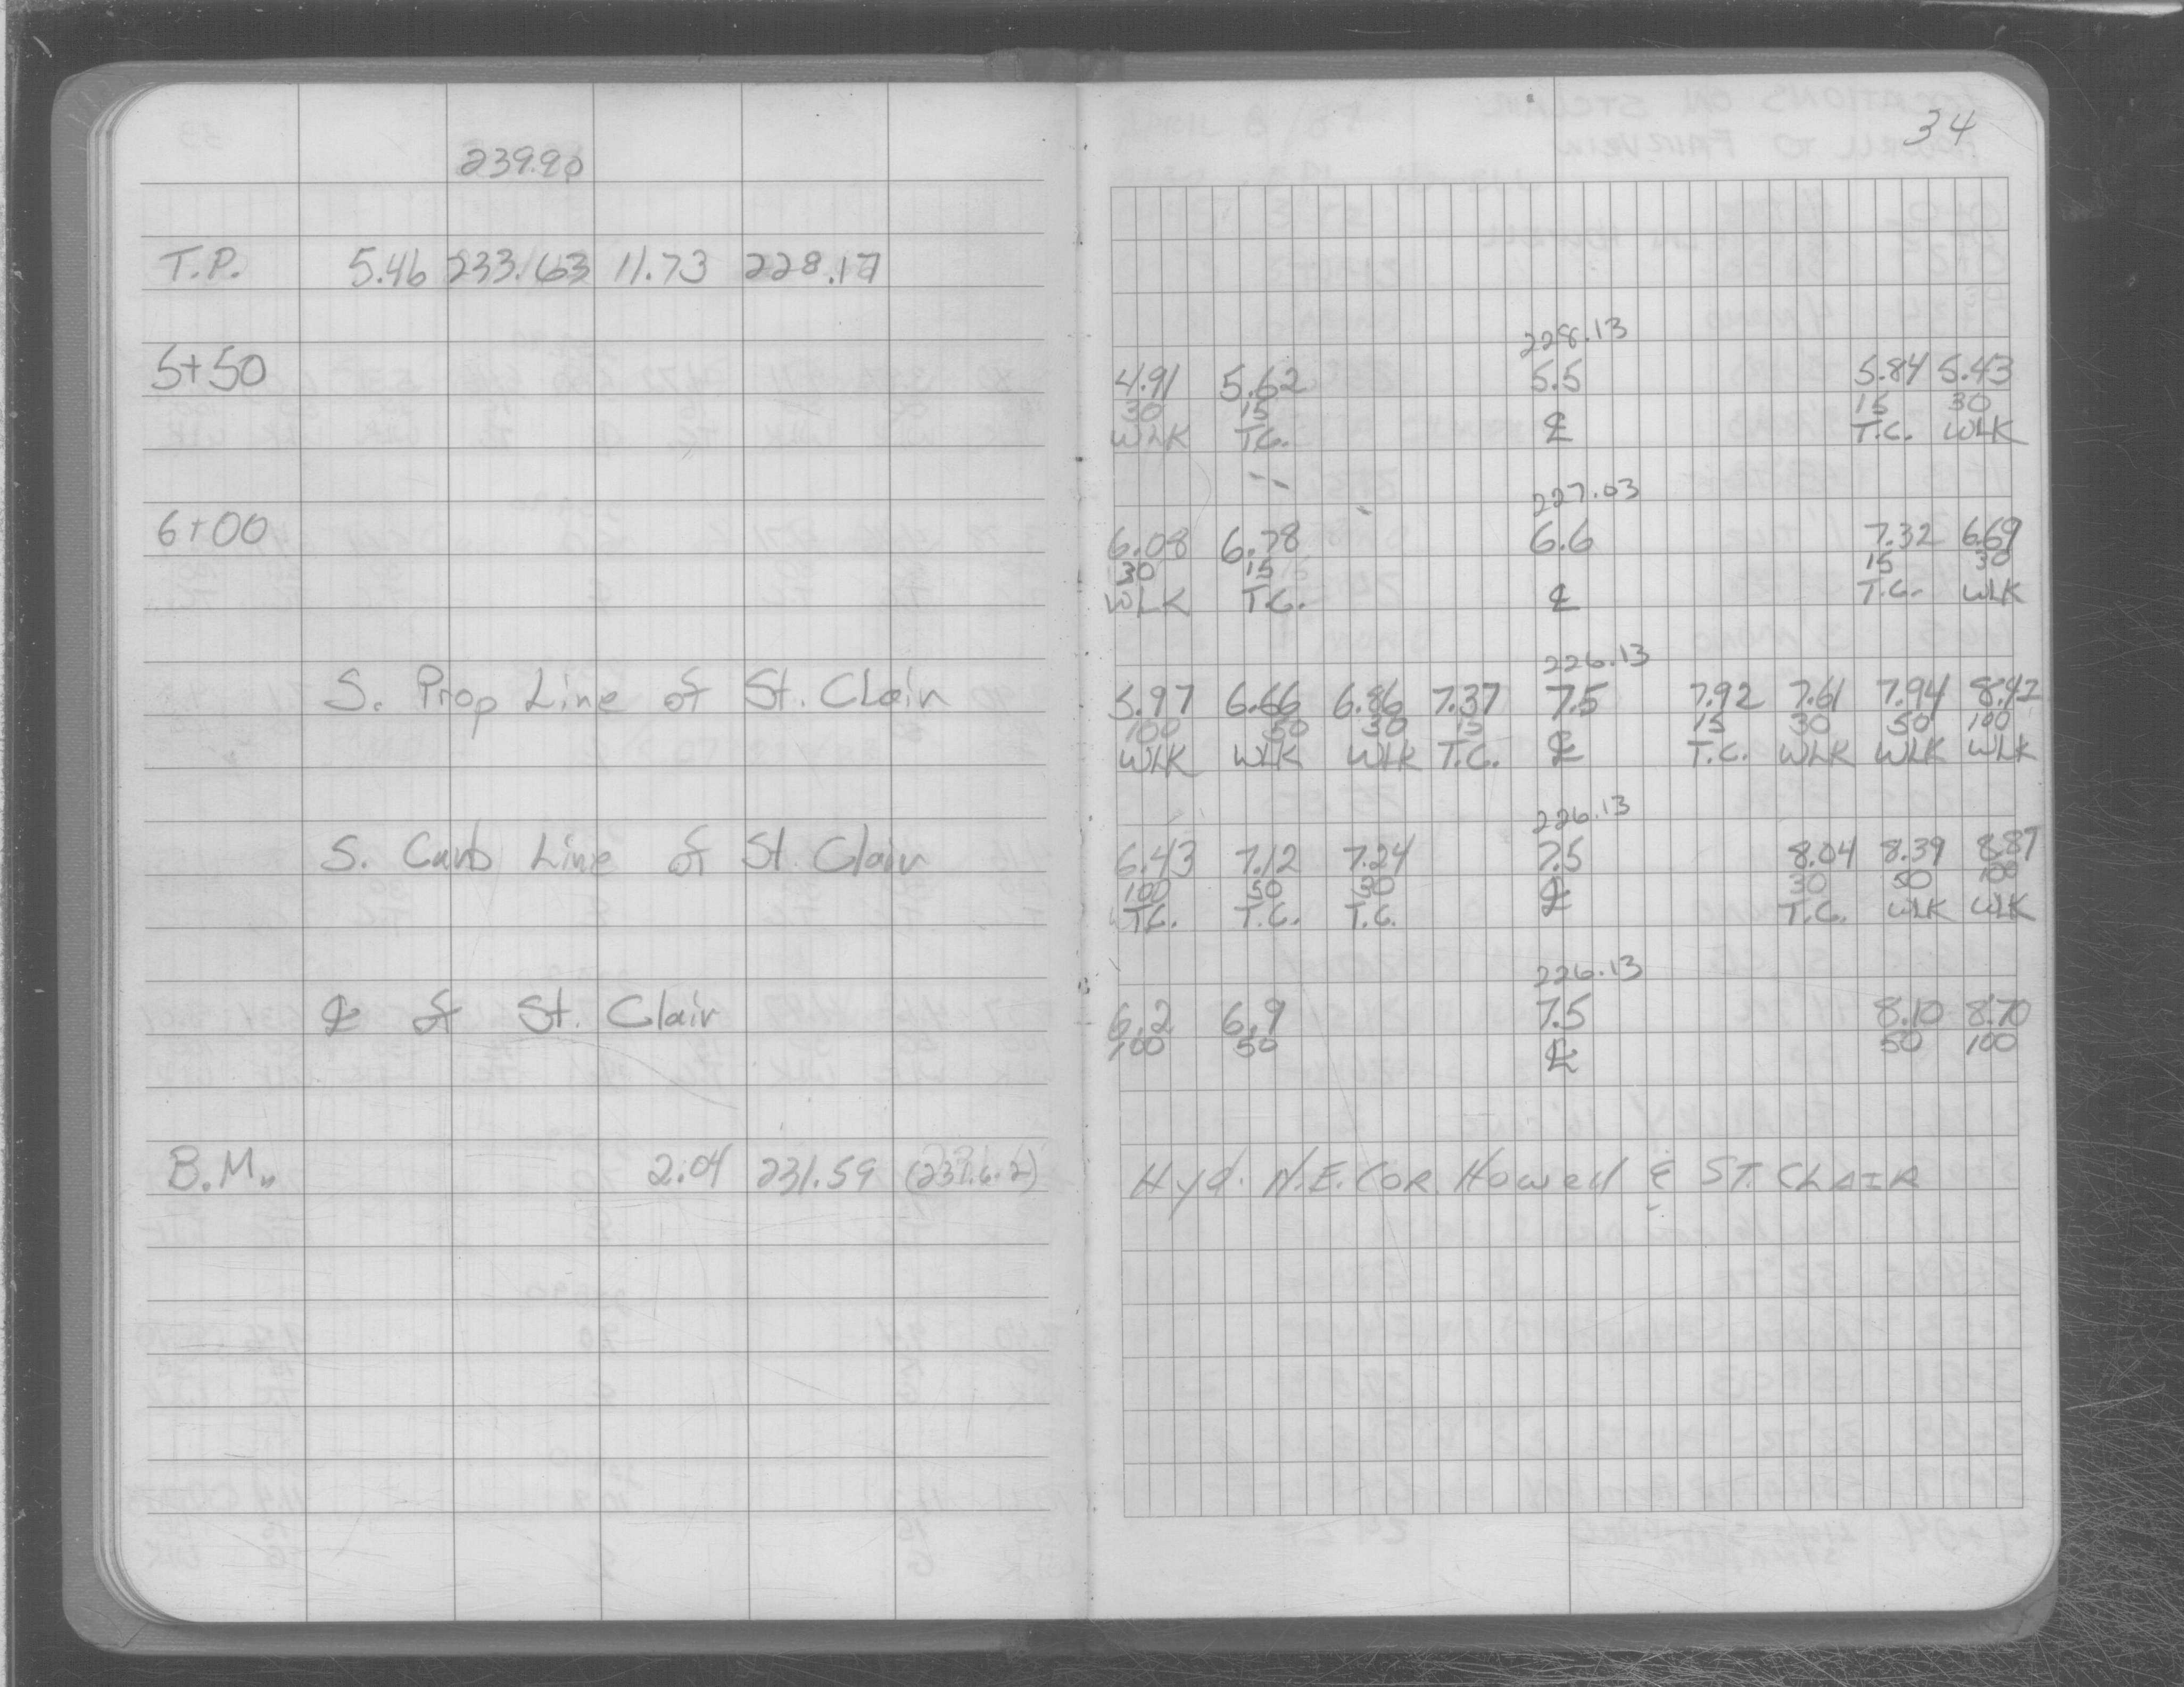 34
239.90
T.P. 5.46 233.63 11.73 228.17
228.13
5+50 4.91 5.62 5.5 5.84 5.43
30 15 15 30
WLK T.C. ℄ T.C. WLK
227.03
6+00 6.08 6.78 6.6 7.32 6.69
30 15 15 30
WLK T.C. ℄ T.C. WLK
226.13
S. Prop Line of St. Clair 5.97 6.66 6.86 7.37 7.5 7.92 7.61 7.94 8.42
100 50 30 15 15 30 50 100
WLK WLK WLK T.C. ℄ T.C. WLK WLK WLK
226.13
S. Curb Line of St. Clair 6.43 7.12 7.24 7.5 8.04 8.39 8.87
100 50 30 ℄ 30 50 100
T.C. T.C. T.C. T.C. WLK WLK
226.13
℄ of St. Clair 6.2 6.9 7.5 8.10 8.70
100 50 ℄ 50 100
B.M. 2.04 231.59 (231.62) Hyd. N.E. COR. Howell & ST. CLAIR